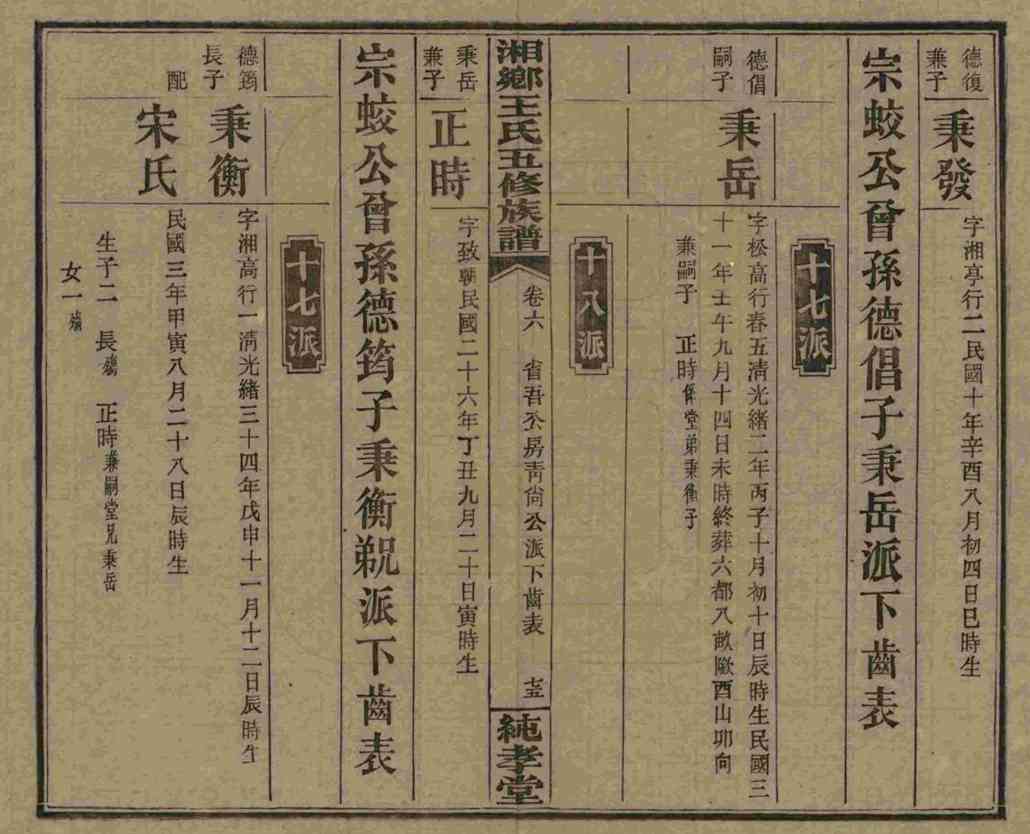 德復
兼子
秉發
字湘亭行二民國十年辛酉八月初四日巳時生
宗蛟公曾孫德倡子秉岳派下齒表
十七派
德倡
嗣子
秉岳
字松高行春五清光緒二年丙子十月初十日辰時生民國三
十一年壬午九月十四日未時終葬六都八畝歐酉山卯向
兼嗣子 正時係堂弟秉衡子
十八派
湘鄉王氏五修族譜
卷六 省吾公房靑尙公派下齒表
純孝堂
秉岳
兼子
正時
字致朝民國二十六年丁丑九月二十日寅時生
宗蛟公曾孫德筠子秉衡 派下齒表
十七派
德筠
長子
秉衡
字湘高行一淸光緒三十四年戊申十一月十二日辰時生
配
宋氏
民國三年甲寅八月二十八日辰時生
生子二 長殤 正時兼嗣堂兄秉岳
女一殤